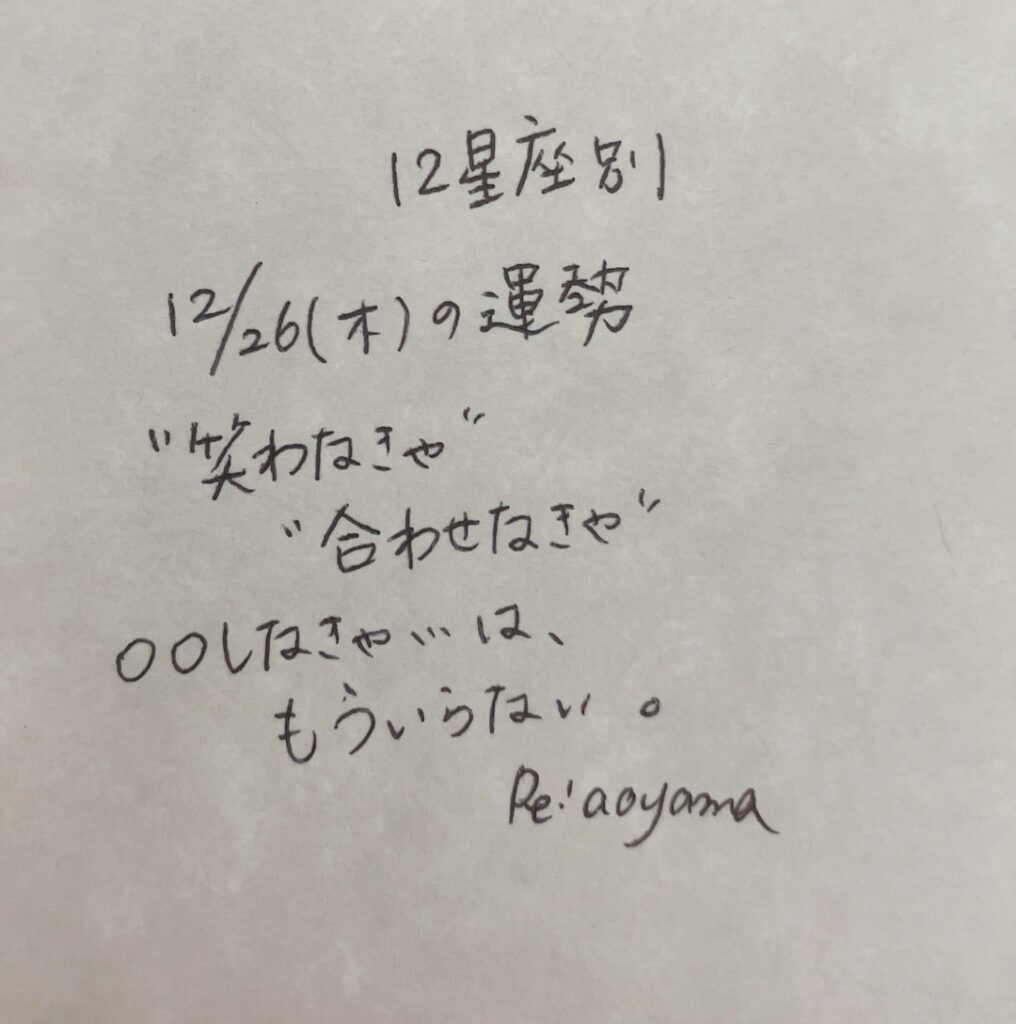 12星座別
12/26(木)の運勢
"笑わなきゃ"
"合わせなきゃ"
〇〇しなきゃ…は、
もういらない。
Rei aoyama